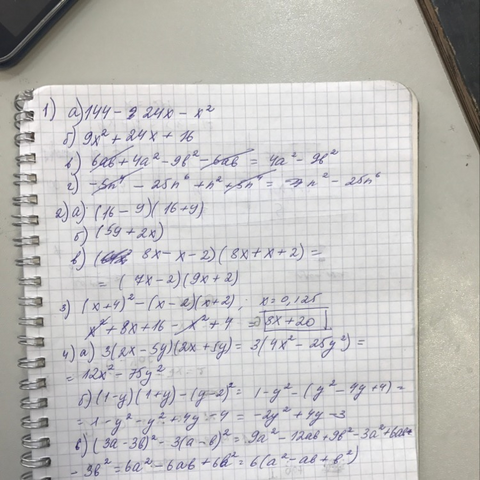 1) а) 144 - 24x - x²
б) 9x² + 24x + 16
в) 6ab + 4a² - 9b² - 6ab = 4a² - 9b²
г) -5n⁴ - 25n⁶ + n² + 5n⁴ = n² - 25n⁶
2) а) (16 - 9)(16 + 9)
б) (5y + 2x)
в) (8x - x - 2)(8x + x + 2) =
= (7x - 2)(9x + 2)
3) (x + 4)² - (x - 2)(x + 2); x = 0,125
x² + 8x + 16 - x² + 4 = 8x + 20
4) а) 3(2x - 5y)(2x + 5y) = 3(4x² - 25y²) =
= 12x² - 75y²
б) (1 - y)(1 + y) - (y - 2)² = 1 - y² - (y² - 4y + 4) =
= 1 - y² - y² + 4y - 4 = -2y² + 4y - 3
в) (3a - 3b)² - 3(a - b)² = 9a² - 12ab + 9b² - 3a² + 6ab -
- 3b² = 6a² - 6ab + 6b² = 6(a² - ab + b²)